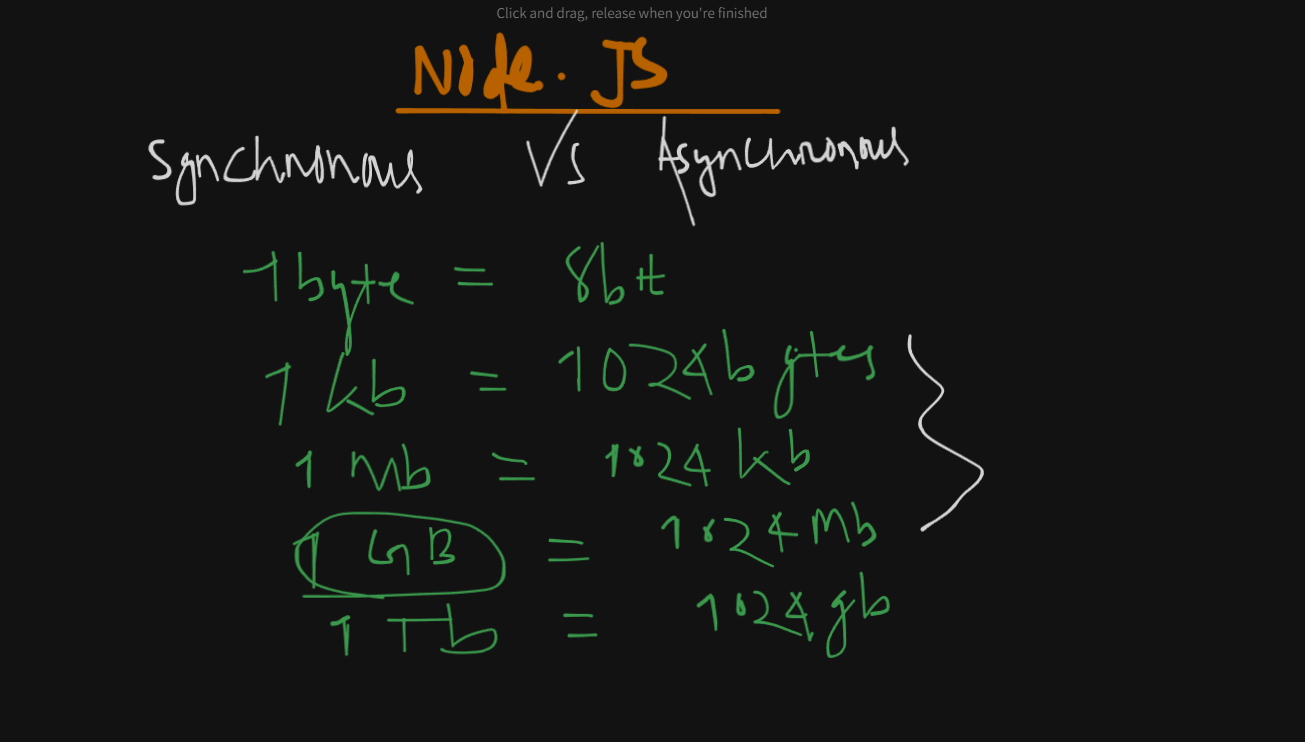 Click and drag, release when you're finished
Node. JS
Synchronous Vs Asynchronous
1 byte = 8 bit
1 kb = 1024 bytes
1 Mb = 1024 kb
1 GB = 1024 Mb
1 Tb = 1024 gb